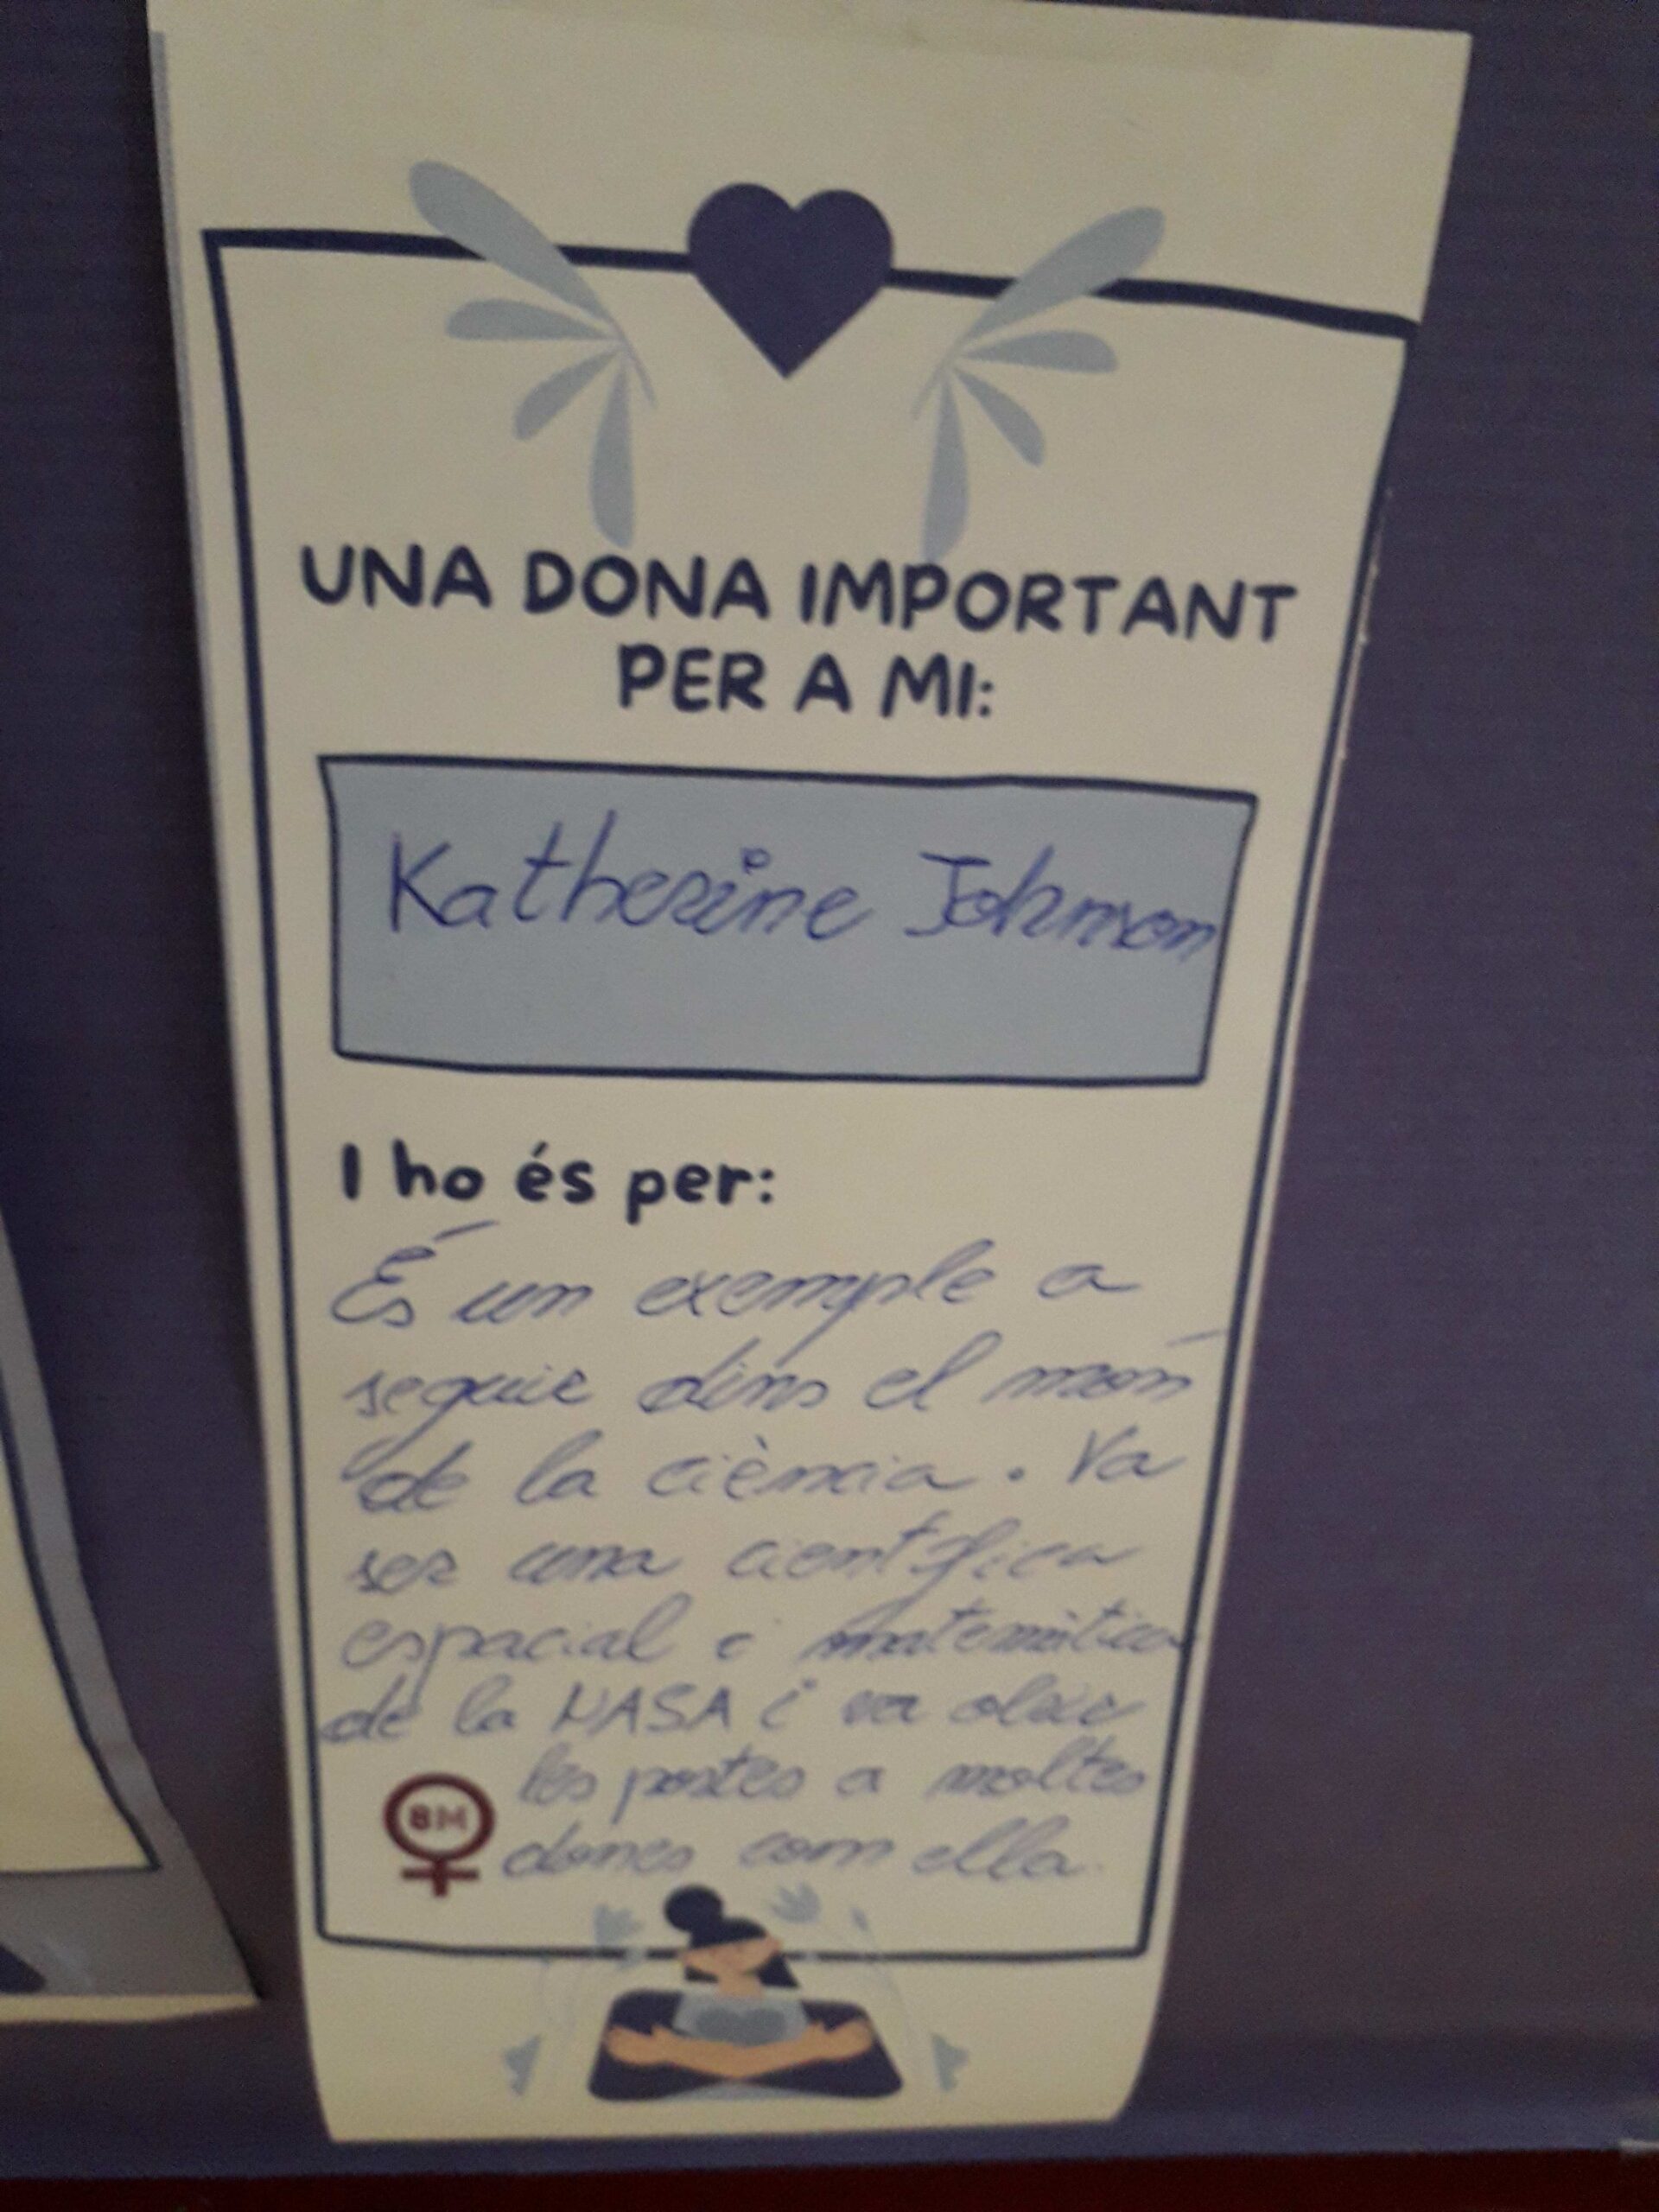 UNA DONA IMPORTANT
PER A MI:
Katherine Johnson
I ho és per:
És un exemple a
seguir dins el món
de la ciència. Va
ser una científica
espacial i matemàtica
de la NASA i va obrir
les portes a moltes
dones com ella.
8M